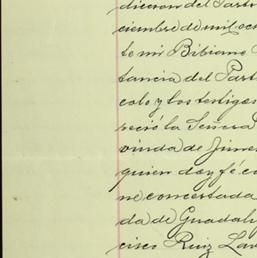 diccion del Parti
ciembre de mil och
te mi Bibiano
tancia del Part
colo y los testigos
peció la Señora
viuda de Jime
quien doy fé co
ne concertada
da de Guadalu
cisco Ruiz Lav